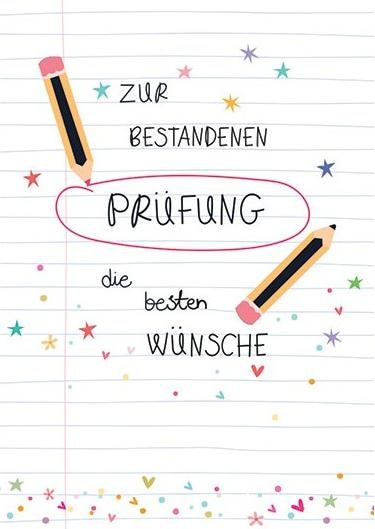 ZUR
BESTANDENEN
PRÜFUNG
die
besten
WÜNSCHE